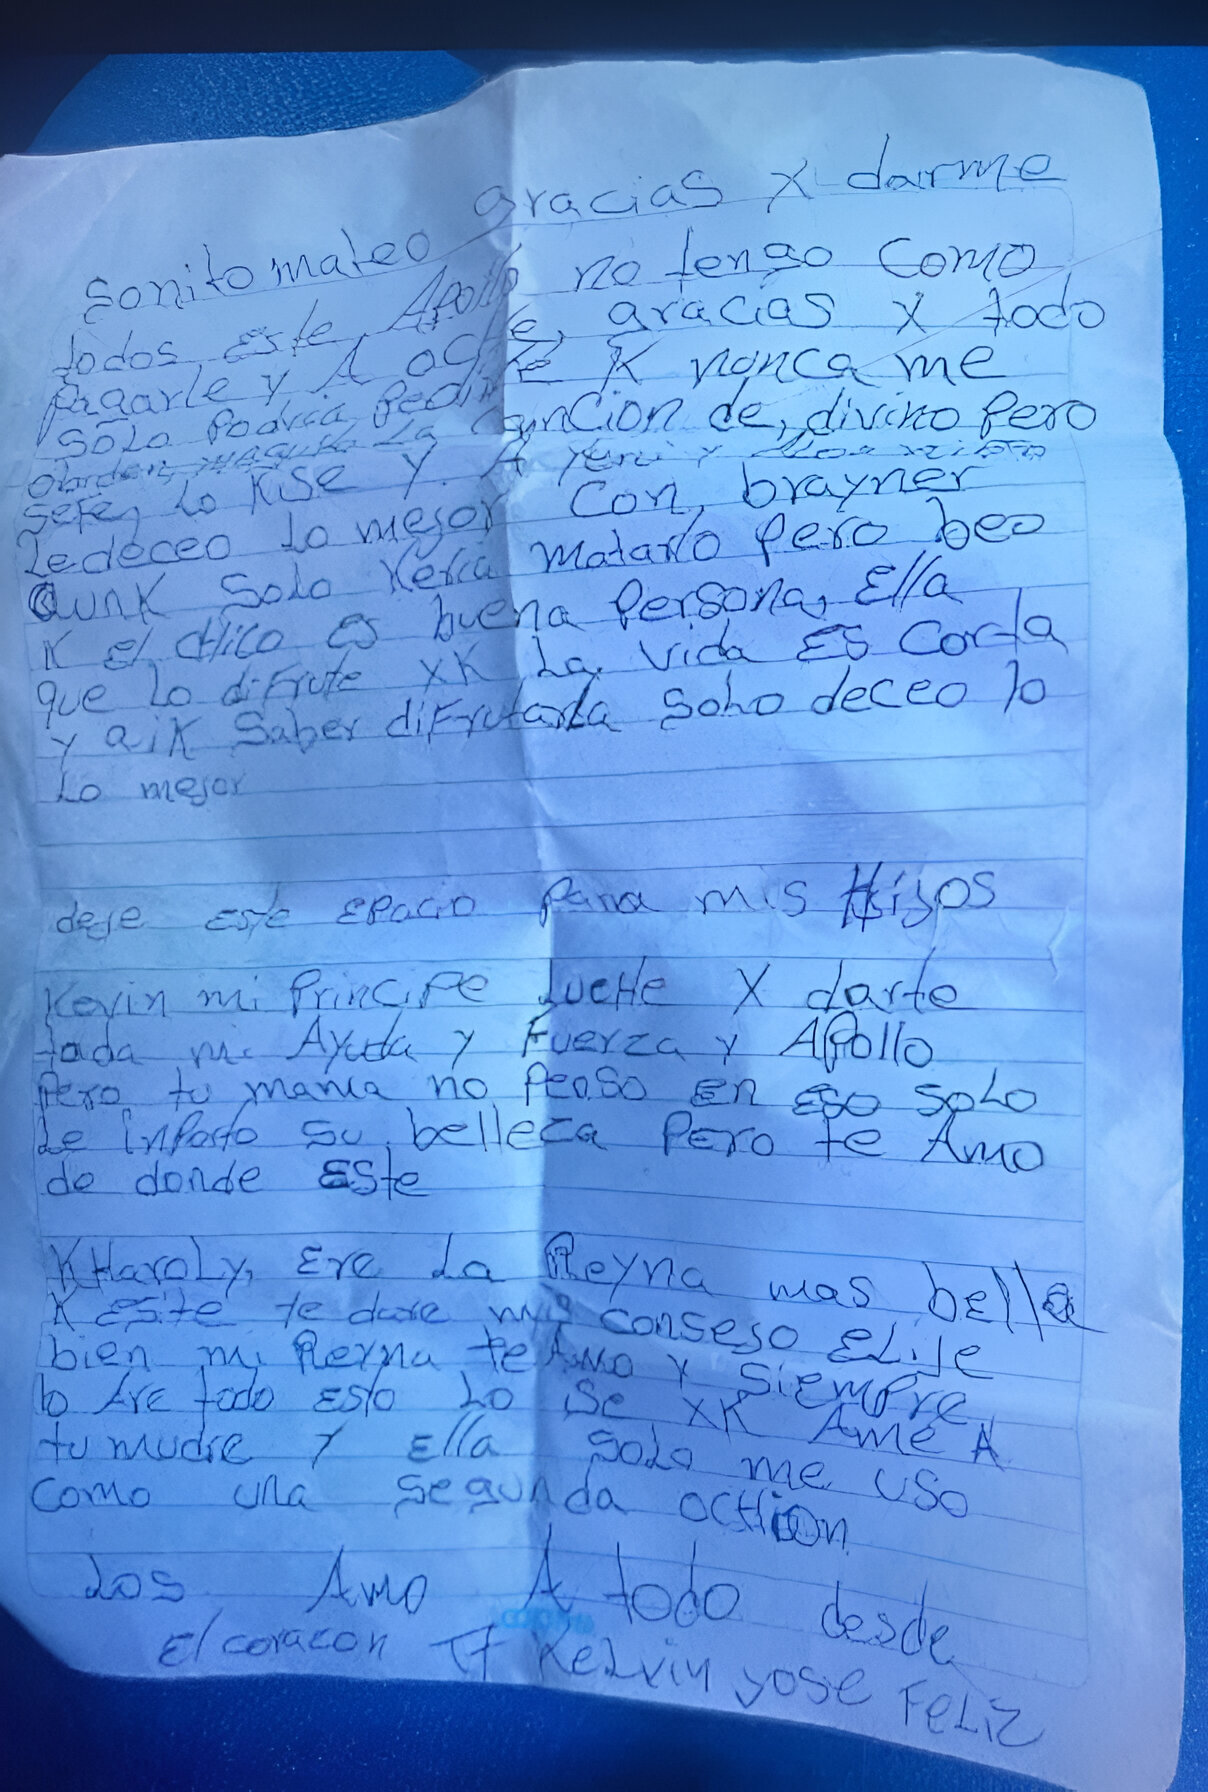 gracias x darme
sonito mateo
todos este Apollo no tengo como
Pagarle y A ache, gracias x todo
Solo Podria Pedirle K nonca me
olbiden la Cancion de, divino Pero
sefe, Lo Kise y. A yeni y
Ledeceo Lo mejor con, brayner
aunK Solo Keria matarlo Pero beo
K el cHico es buena Persona, Ella
que Lo diFrute xK La vida ES Corta
y aiK Saber diFrutarla SoLo deceo lo
Lo mejor
deje este EPacio Para mis Hijos
Kevin mi PrinciPe LucHe X darte
toda mi Ayuda y Fuerza y APollo
Pero tu mama no Penso En ESo SoLo
Le inPorto Su belleza Pero te Amo
de donde ESte
KHaroLy, Ere La Reyna mas bella
K esite te dare mis consejo ELije
bien mi Reyna te Amo y Siempre
lo Are todo esto Lo iSe xK Ame A
tu madre y Ella SoLo me uso
como una segunda ocHion
Los Amo A todo desde
El corazon Kelvin yose FeLiz